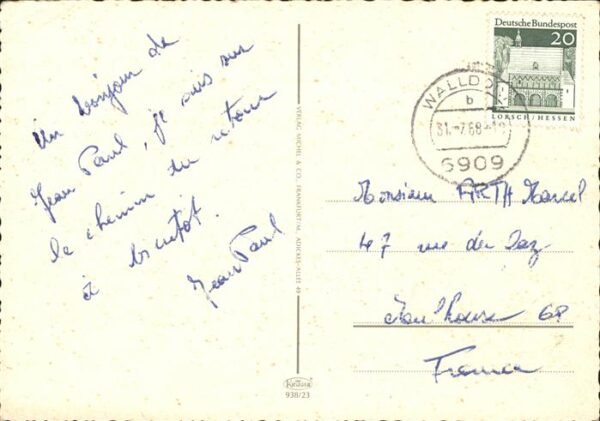 Un bonjour de
Jean Paul, je suis sur
le chemin du retour
à bientôt.
Jean Paul
VERLAG MICHEL & CO., FRANKFURT/M., ADICKES-ALLEE
Krüger
938/23
Deutsche Bundespost
20
LORSCH/HESSEN
WALLD
b
31.-7.68
6909
Monsieur ARTH Marcel
47 rue du
68
France